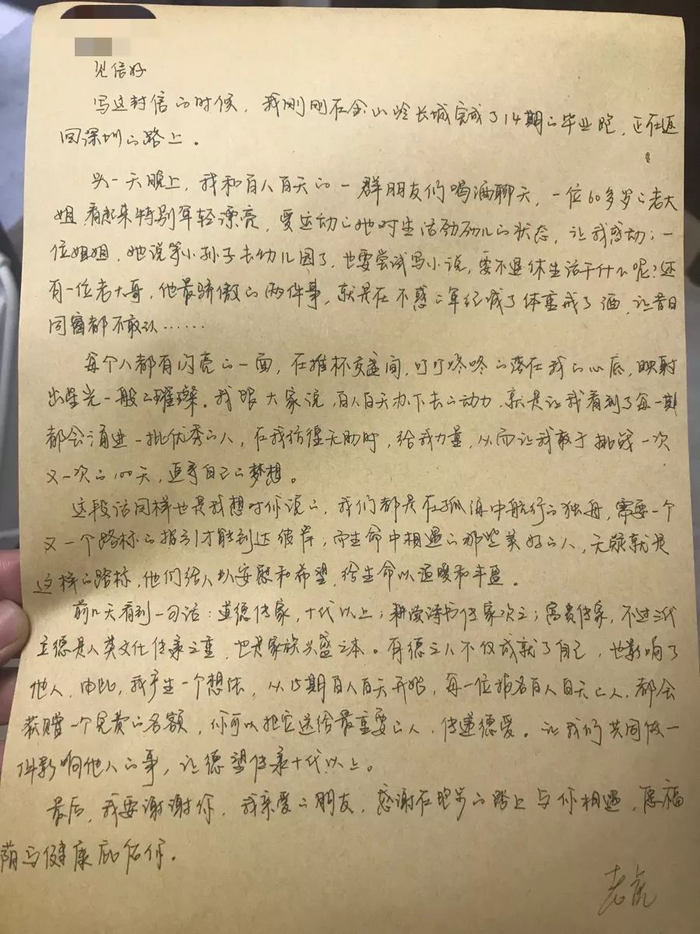 见信好
写这封信的时候，我刚刚在金山岭长城完成了14期的毕业跑，正在返
回深圳的路上。
头一天晚上，我和百人百天的一群朋友们喝酒聊天，一位60多岁的老大
姐看起来特别年轻漂亮，爱运动的她对生活劲劲儿的状态，让我感动；一
位姐姐，她说等小孙子去幼儿园了，也要尝试写小说，要不退休生活干什么呢？还
有一位老大哥，他最骄傲的两件事，就是在不惑之年纪减了体重戒了酒，让昔日
同窗都不敢认……
每个人都有闪亮的一面，在推杯交盏间，叮叮咚咚的落在我的心底，映射
出星光一般的璀璨。我跟大家说，百人百天办下去的动力，就是让我看到了每一期
都会涌进一批优秀的人，在我彷徨无助时，给我力量，从而让我敢于挑战一次
又一次的100天，追寻自己的梦想。
这段话同样也是我想对你说的，我们都是在孤海中航行的独舟，需要一个
又一个路标的指引才能到达彼岸，而生命中相遇的那些美好的人，无疑就是
这样的路标，他们给人以安慰和希望，给生命以温暖和丰盈。
前几天看到一句话：道德传家，十代以上；耕读诗书传家次之；富贵传家，不过三代
立德是人类文化传承之重，也是家族兴盛之本。有德之人不仅成就了自己，也影响了
他人，由此，我产生一个想法，从15期百人百天开始，每一位报名百人百天的人，都会
获赠一个免费的名额，你可以把它送给最重要的人，传递德爱。让我们共同做一
件影响他人的事，让德望传承十代以上。
最后，我要谢谢你，我亲爱的朋友，感谢在跑步的路上与你相遇，愿福
荫与健康庇佑你。
老虎